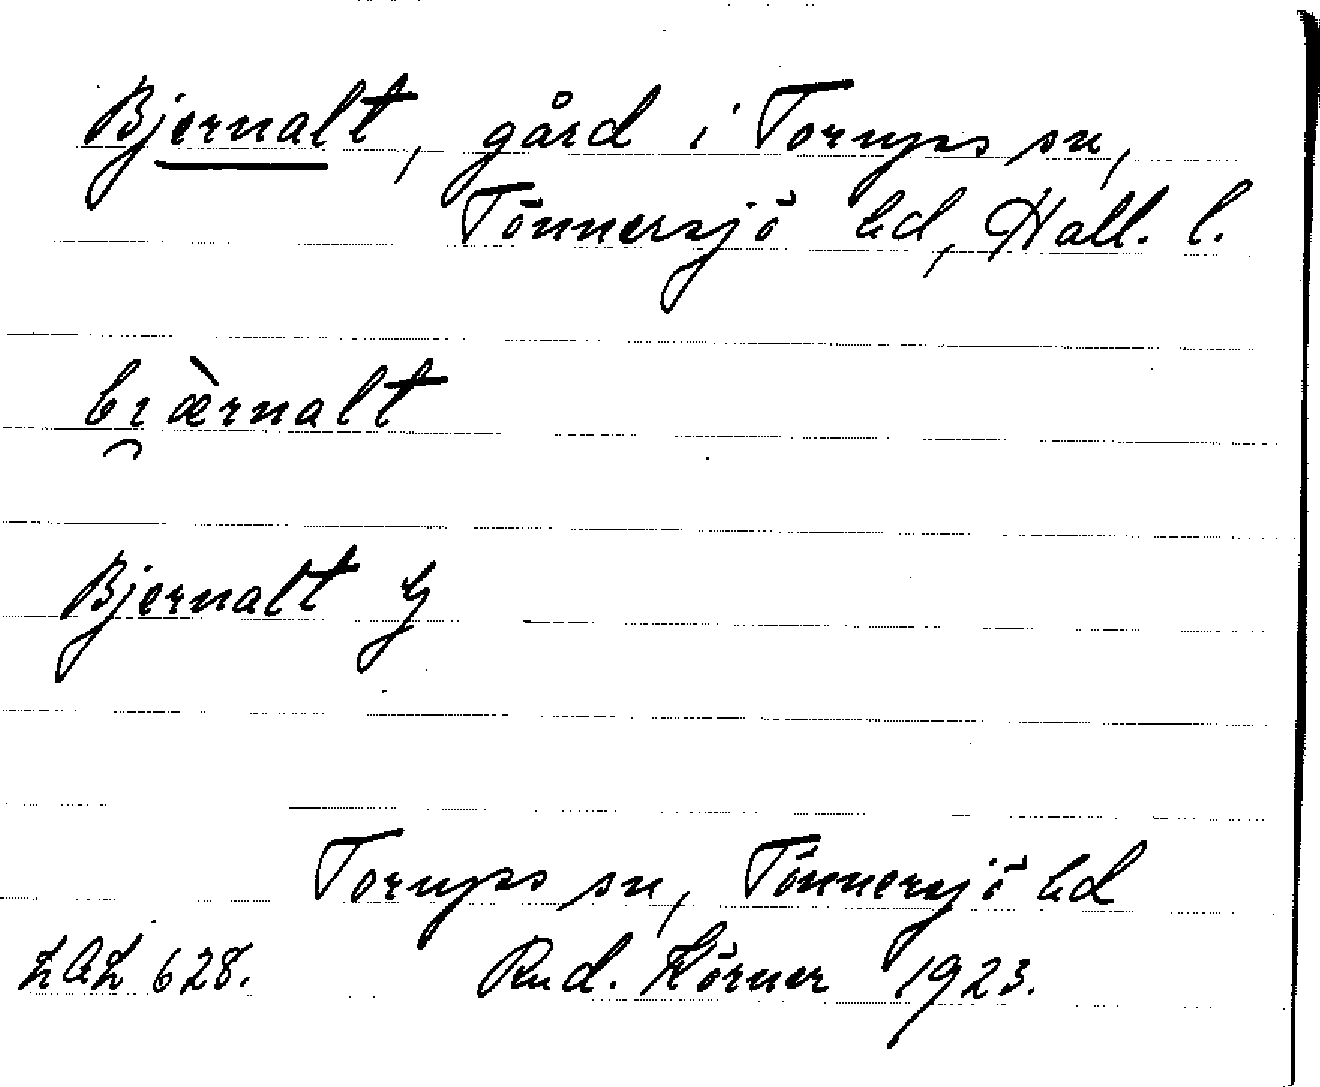 Bjernalt, gård i Torups sn,
Tönnersjö hd, Hall. l.
bi̯æ̀rnalt
Bjernalt G
Torups sn, Tönnersjö hd
LAL 628. Rud. Körner 1923.